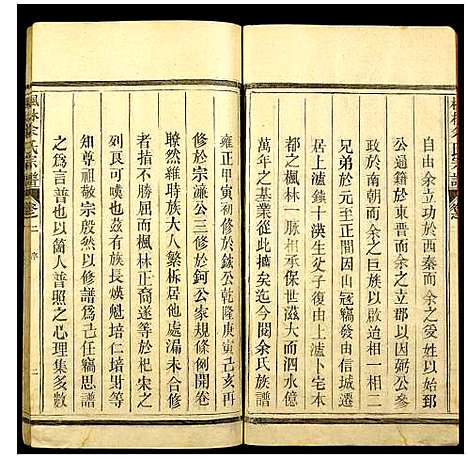 自由余立功於西秦而余之受姓以始郅
公通籍於東晉而余之立郡以因弼公執
政於南朝而余之巨族以啟追一相相二
兄弟於元至正間因山寇竊發由信城遷
居上瀘鎮十漢生父子復由上瀘卜宅本
都之楓林一脈相承以一而泗水億
萬年之基業從此擴矣迄今閱余氏族譜
雍正甲寅初修於鉉公乾隆庚寅己亥再
修於宗濂公三修於鈳公家規條例開卷
瞭然維時族大人繁柝居他處漏未及修
者不勝屈而楓林正裔遂等於杞宋之
列良可嘆也有族長煐魁培仁培財等
知尊祖敬宗殷然以修譜爲己任竊思譜
之爲言普也以箇人普照之心理集多數
楓林余氏宗譜
卷之一
序
二